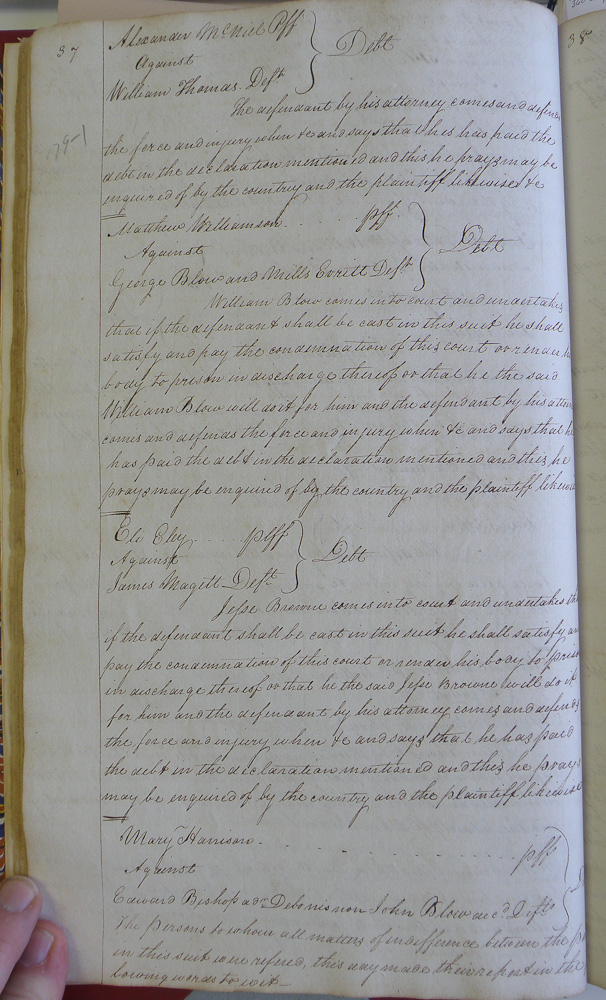 37
Alexander McNiel Pff
Against
William Thomas. Deft
Debt
The defendant by his attorney comes and defends
the force and injury when &c and says that he has paid the
debt in the declaration mentioned and this he prays may be
enquired of by the country and the plaintiff likewise &c
79-1
Matthew Williamson . . . . pff.
Against
George Blow and Mills Evritt Deft
Debt
William Blow comes into court and undertakes
that if the defendant shall be cast in this suit he shall
satisfy and pay the condemnation of this court or render
body to prison in discharge thereof or that he the said
William Blow will do it for him and the defendant by his
comes and defends the force and injury when &c and says that
has paid the debt in the declaration mentioned and this he
prays may be enquired of by the country and the plaintiff
Eli Eley . . . . plff
Against
James Magett Deft
Debt
Jesse Browne comes into court and undertakes
if the defendant shall be cast in this suit he shall satisfy
pay the condemnation of this court or render his body to
in discharge thereof or that he the said Jesse Browne will do it
for him and the defendant by his attorney comes and defends
the force and injury when &c and says that he has paid
the debt in the declaration mentioned and this he prays
may be enquired of by the country and the plaintiff likewise
Mary Harrison . . . . . pff
Against
Edward Bishop adr Debonis non John Blow decd Deft
The Persons to whom all matters of indifference between the
in this suit were refered, this day made their report in the
lowing words to wit
38